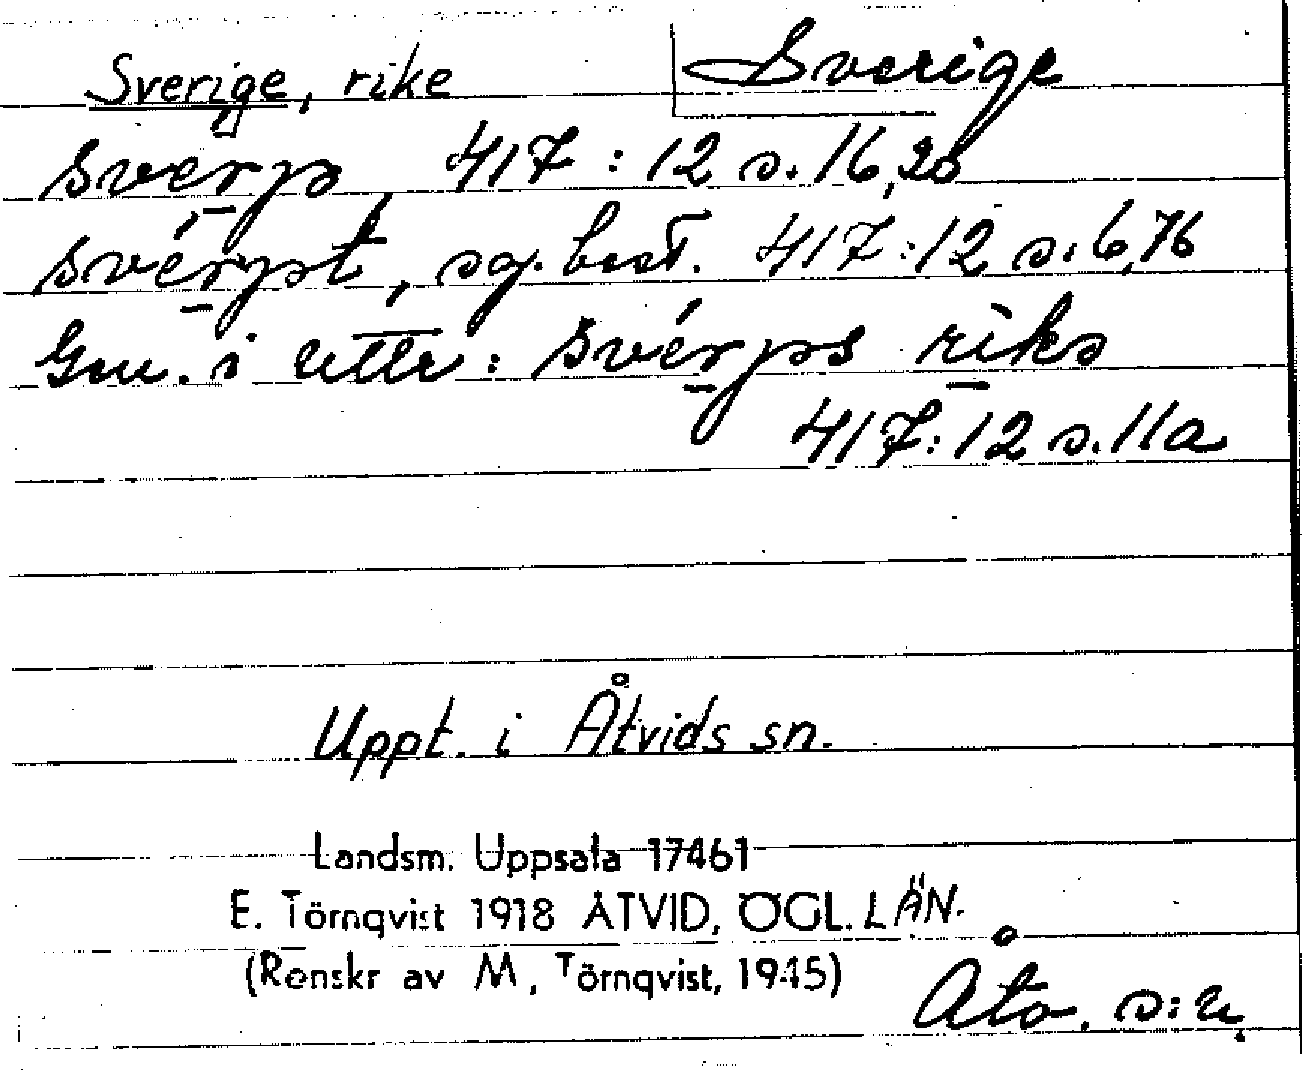 Sverige, rike
Sverige
svérjə 417:12 s. 16, 20
svérjət, sg. best. 417:12 s. 6, 76
Gm. i uttr: svérjəs rikə
417:12 s. 11a
Uppt. i Åtvids sn.
Landsm. Uppsala 17461
E. Törnqvist 1918 ÅTVID, ÖGL. LÄN.
(Renskr av M. Törnqvist, 1945)
Åto. s:n.